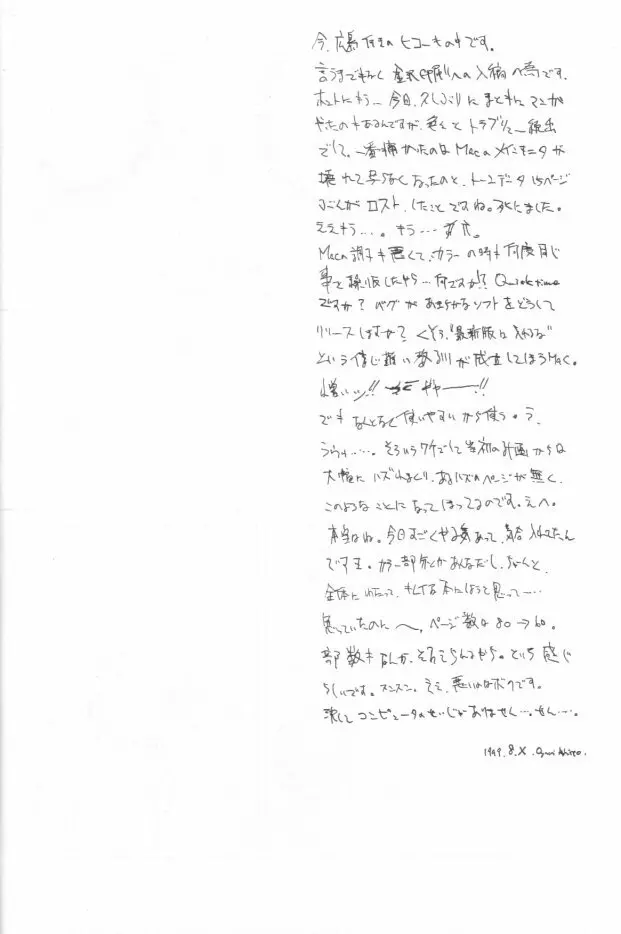 今、広島行きのヒコーキの中です。
言うまでもなく 金沢印刷への入稿の為です。
ホントにもう… 今日、久しぶりに まともに マンガ
やったのもあるんですが、色々と トラブル 続出
でして。一番痛かったのは Mecaメインモニタが
壊れて写らなくなったのと、トーンデータ 15ページ
ぶんがロスト したことですね。死にました。
ええもう…。もう…
Meca調子も悪くて、カラーの時も何度同じ
事を繰り返したやら…何ですか!? Quicktime
ですか? バグがあきらかなソフトをどうして
リリースしますか? くそう、"最新版は入れるな"
という信じ難い 教訓が成立してしまうMac。
憎いッ!! ギャーーー!!
でも なんとなく使いやすいから使う。う、
ううぅ……。そういうワケでして 当初の計画からは
大幅に ハズれまくり、あるハズのページが無く、
このような ことに なってしまってるのです。えへ。
本当はね。今日すごくやる気あって、気合 入れてたん
ですよ。カラー部分とかあんなだし、ちゃーんと、
全体に わたって、キレイな本にしようと思って……
思っていたのに 〜、ページ数は 80→60。
部数も なんか、そろえらんねーから。という 感じ
らしいです。スンスン。ええ、悪いのはボクです。
決して コンピュータのせいじゃありません…、せん…。
1999. 8. X.